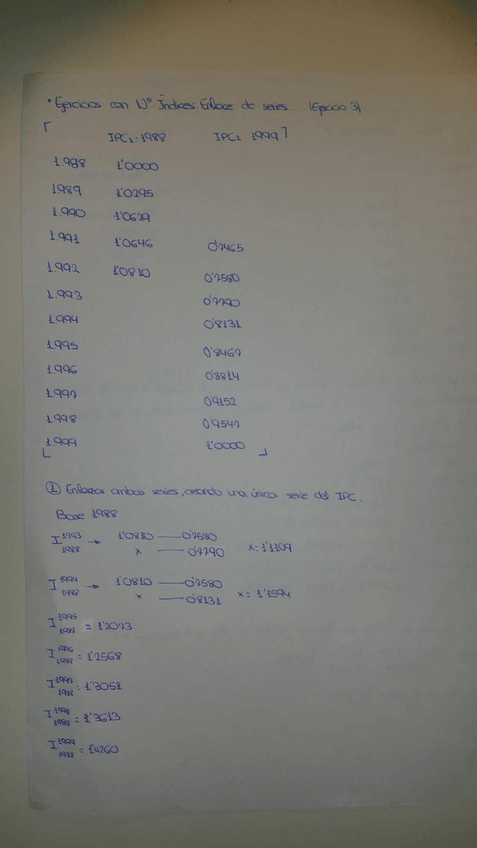 • Ejercicios con Nº Índices Enlace de series. (Ejercicio 3)
IPC₁ : 1988 IPC₂ 1999
1.988 1'0000
1989 1'0295
1.990 1'0629
1.991 1'0646 0'7465
1.992 1'0810 0'7580
1.993 0'7790
1.994 0'8131
1.995 0'8467
1.996 0'8814
1.997 0'9152
1.998 0'9547
1.999 1'0000
① Enlazar ambas series, creando una única serie del IPC.
Base 1988
I 1993 1988 → 1'0810 — 0'7580
x — 0'7790 x = 1'1109
I 1994 1988 → 1'0810 — 0'7580
x — 0'8131 x = 1'1594
I 1995 1988 = 1'2073
I 1996 1988 = 1'2568
I 1997 1988 = 1'3051
I 1998 1988 = 1'3613
I 1999 1988 = 1'4260